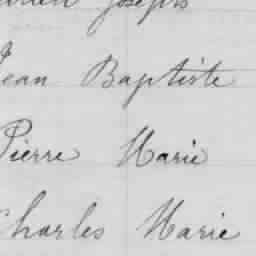 Joseph
Jean Baptiste
Pierre Marie
Charles Marie